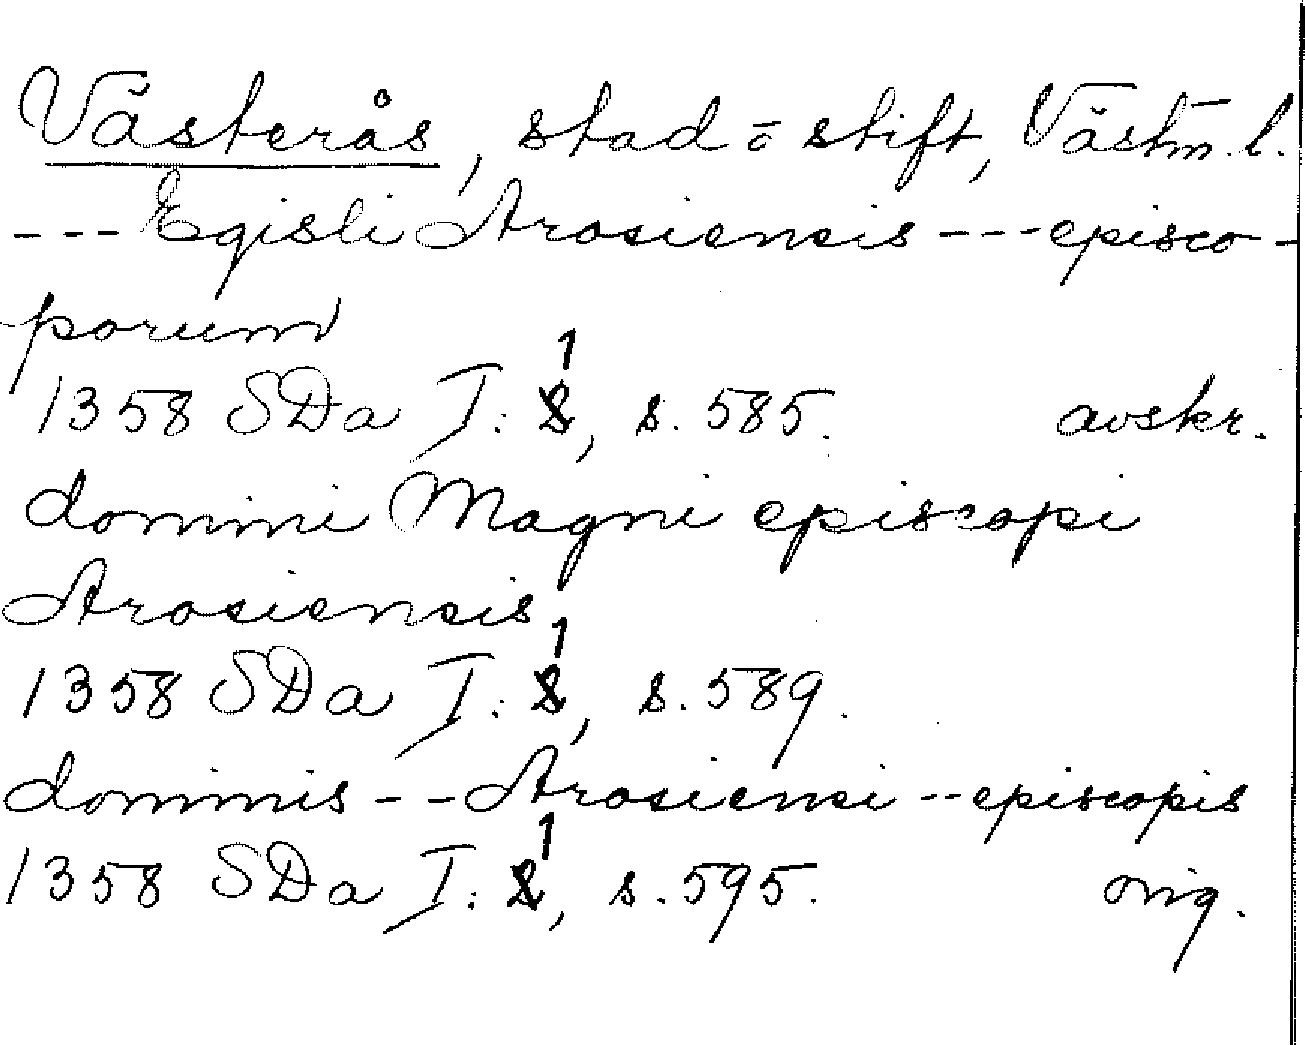 Västerås, stad o stift, Västm. l.
--- Egisli Arosiensis --- episco-
porum
1358 SDa I: 1, s. 585. avskr.
domini Magni episcopi
Arosiensis
1358 SDa I: 1, s. 589.
dominis -- Arosiensi -- episcopis
1358 SDa I: 1, s. 595. orig.